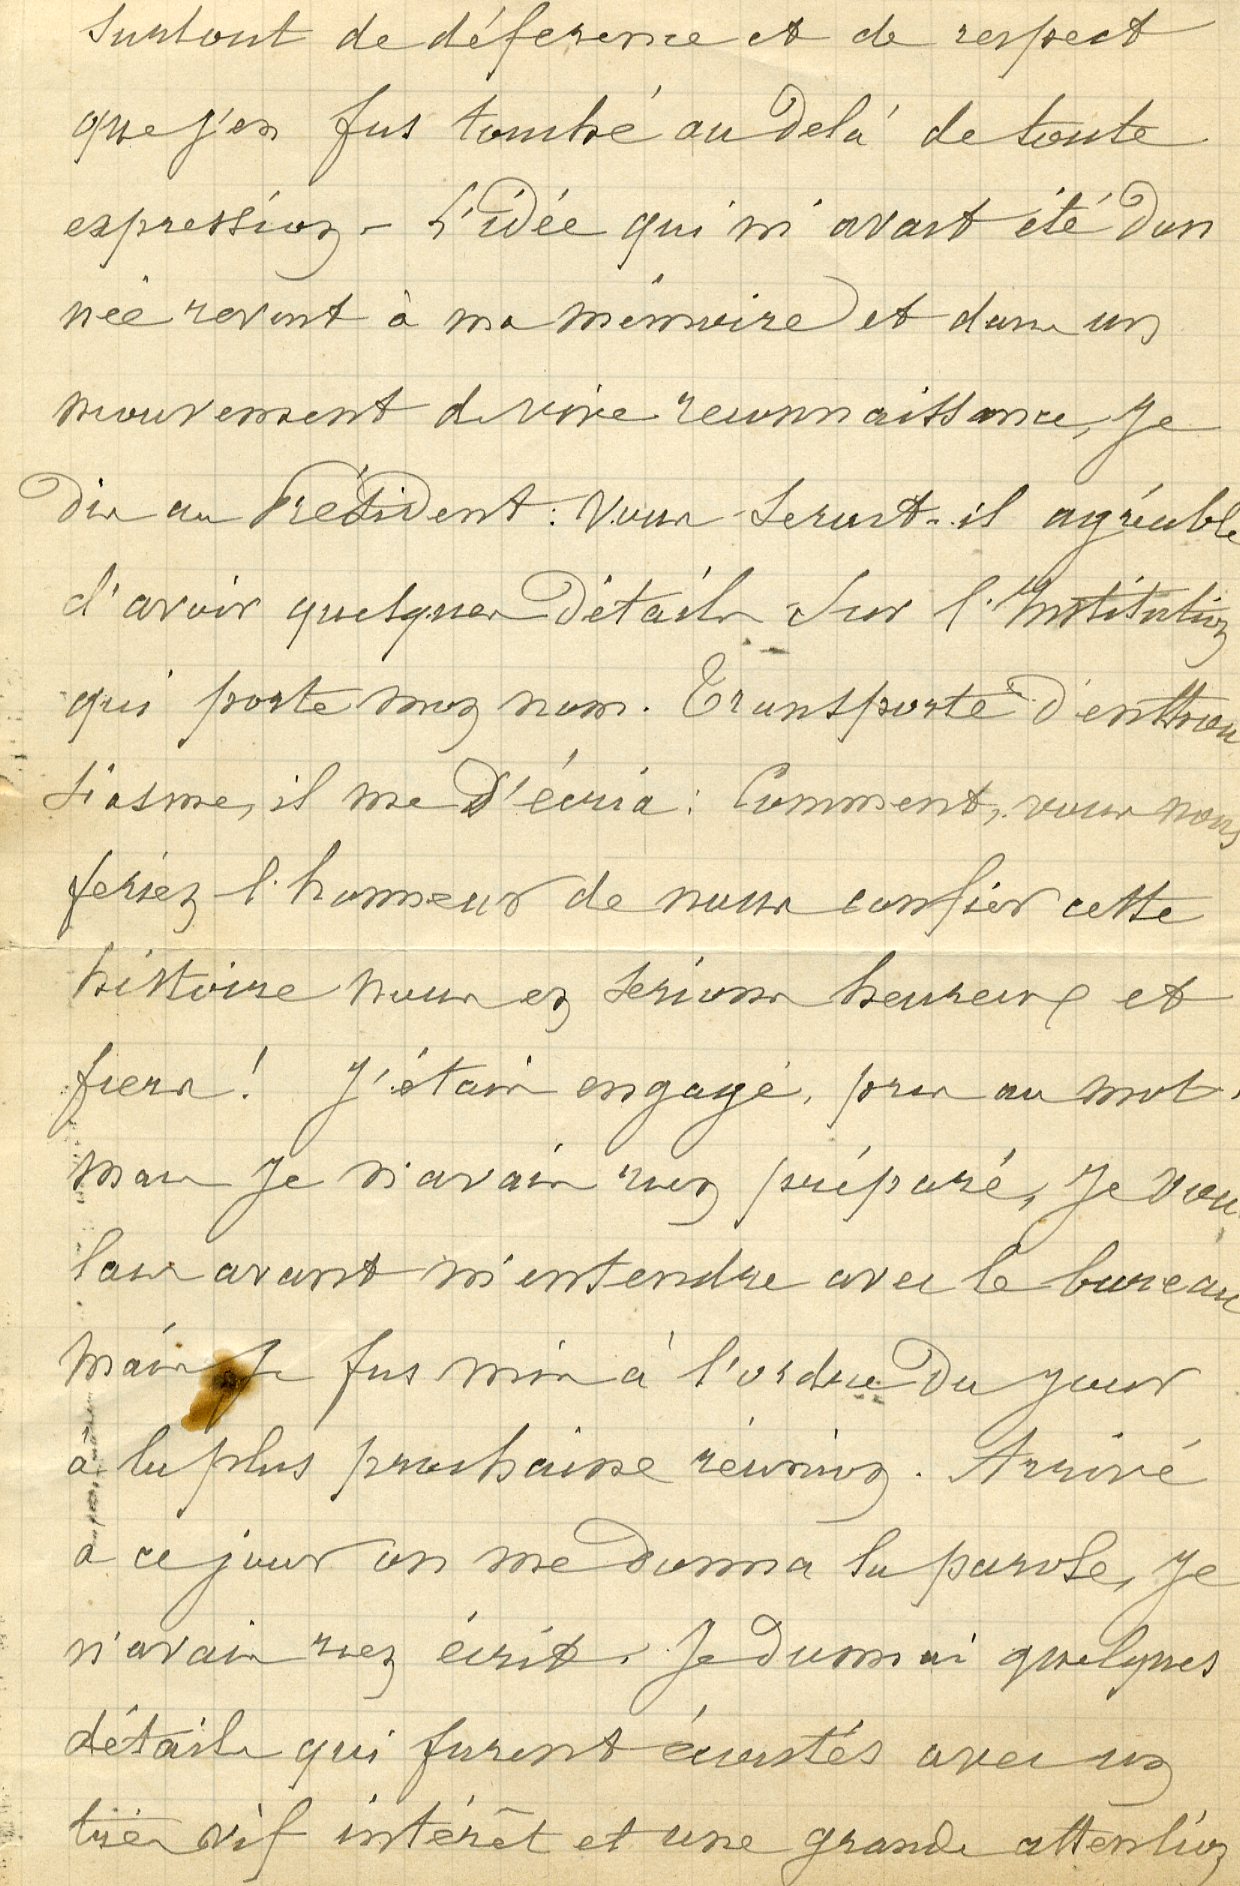 surtout de déférence et de respect
que j'en fus touché au delà de toute
expression – L'idée qui m'avait été don
née revint à ma mémoire et dans un
mouvement de vive reconnaissance, je
dis au Président : Vous serait-il agréable
d'avoir quelques détails sur l'Institution
qui porte mon nom. Transporté d'enthou
siasme, il me s'écria : Comment, vous nous
feriez l'honneur de nous confier cette
histoire nous en serions heureux et
fiers ! J'étais engagé, pris au mot,
mais je n'avais rien préparé, je vou
lais avant m'entendre avec le bureau
mais je fus mis à l'ordre du jour
à la plus prochaine réunion. Arrivé
à ce jour on me donna la parole, je
n'avais rien écrit. Je donnai quelques
détails qui furent écoutés avec un
très vif intérêt et une grande attention